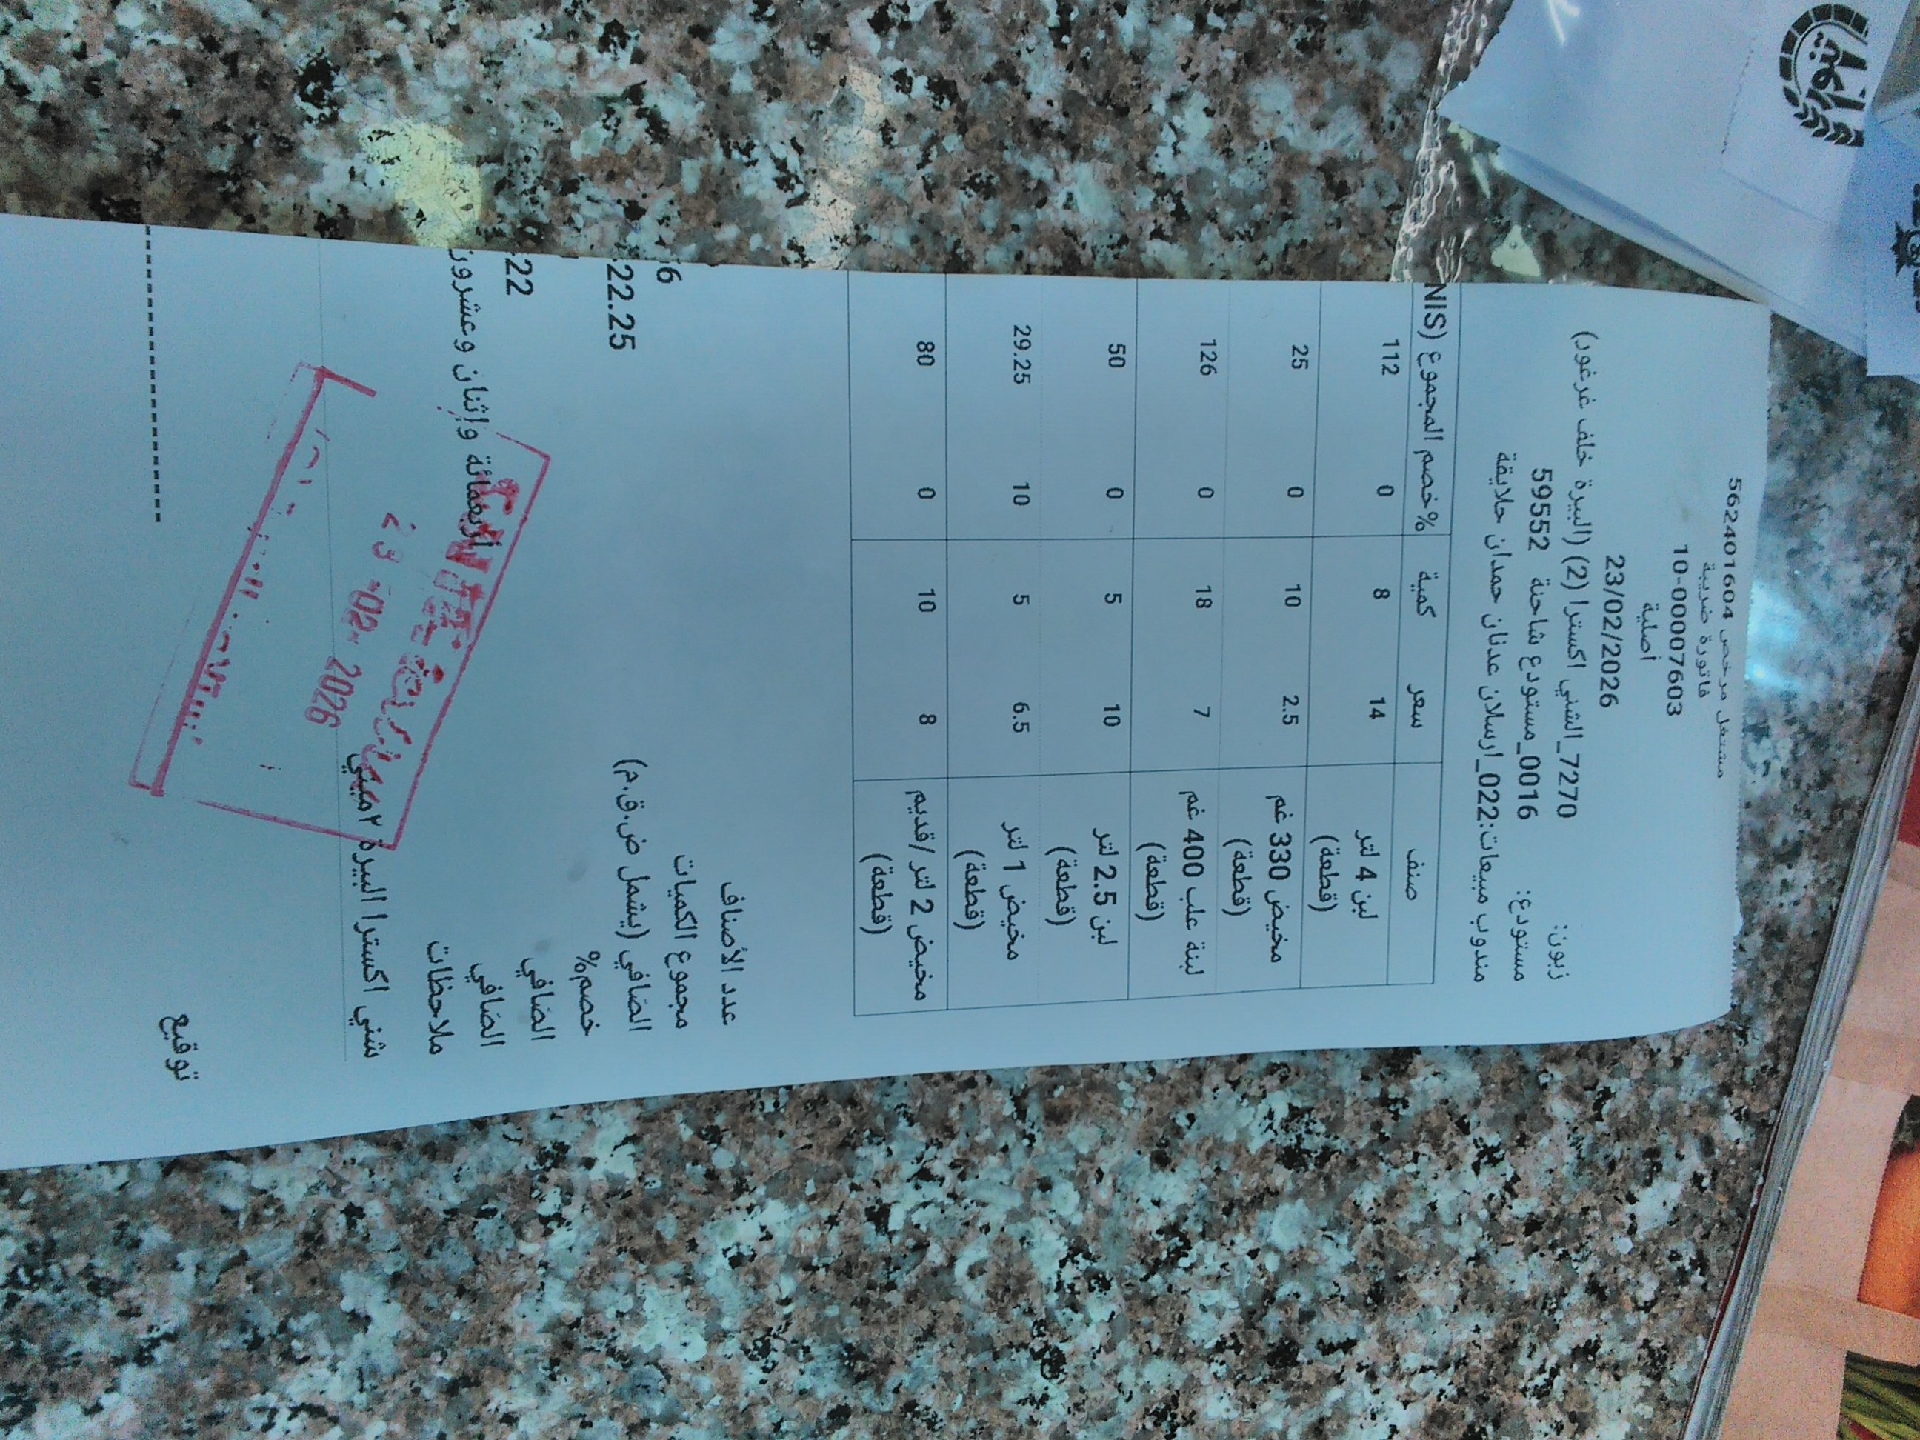 مشتغل مرخص 562401604
فاتورة ضريبية
10-00007603
أصلية
23/02/2026
زبون: 7270_الشني اكسترا (2) (البيرة خلف غرغور)
مستودع: 0016_مستودع شاحنة 59552
مندوب مبيعات:022_ارسلان عدنان حمدان حلايقة
صنف سعر كمية خصم% المجموع (NIS
لبن 4 لتر (قطعة) 14 8 0 112
مخيض 330 غم (قطعة) 2.5 10 0 25
لبنة علب 400 غم (قطعة) 7 18 0 126
لبن 2.5 لتر (قطعة) 10 5 0 50
مخيض 1 لتر (قطعة) 6.5 5 10 29.25
مخيض 2 لتر /قديم (قطعة) 8 10 0 80
عدد الأصناف 6
مجموع الكميات
الصافي (يشمل ض.ق.م) 22.25
خصم%
الصافي 22
الصافي أربعمائة وإثنان وعشرون
ملاحظات
شني اكسترا البيرة
23 -02- 2026
توقيع
تنور